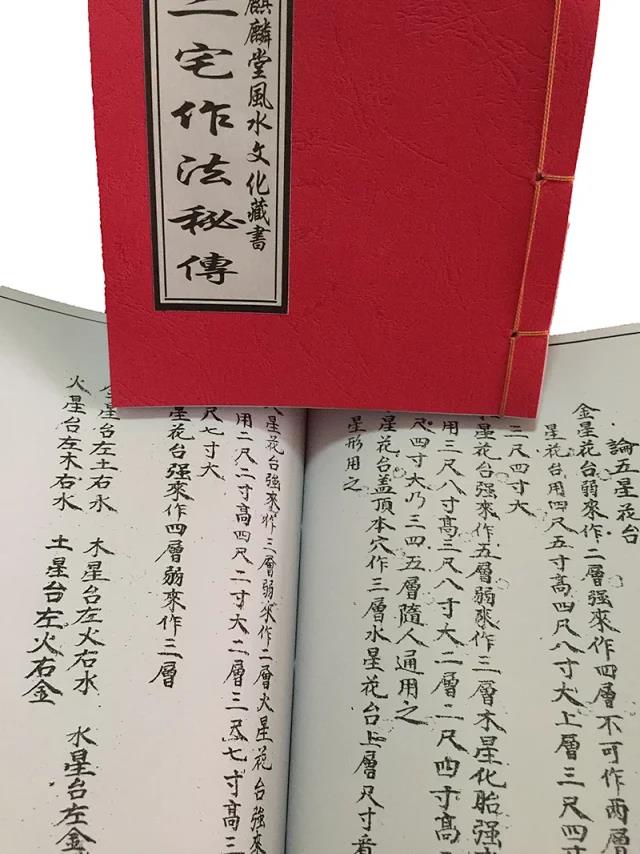 麒麟堂風水文化藏書
二宅作法秘傳
論五星花台
金星花台弱來作二層强來作四層不可作兩層
星花台用四尺五寸高四尺八寸大上層三尺四寸
三尺四寸大
星花台强來作五層弱來作三層木星化胎强
用三尺八寸高三尺八寸大二層二尺四寸高
尺四寸大乃三四五層隨人通用之
星花台盖頂本穴作三層水星花台上層尺寸看
星形用之
星花台强來作三層弱來作二層火星花台强來
用二尺二寸高四尺二寸大二層三尺七寸高三
尺七寸大
星花台强來作四層弱來作三層
星台左土右水 木星台左火右水 水星台左金
火星台左木右水 土星台左火右金